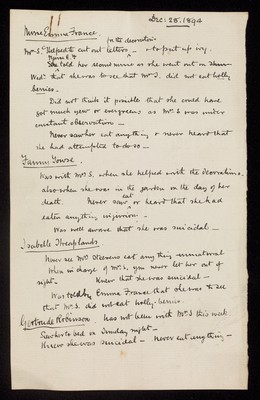 Dec: 28. 1894
Nurse Emma France.
for the decoration
Mrs S. helped to cut out letters – & to put up ivy.
Nurse E. F.
She told her second nurse as she went out on
Wed. that she was to see that Mrs S. did not eat holly
berries.
Did not think it possible that she could have
got much yew or evergreens as Mrs S was under
constant observation –
Never saw her eat anything & never heard that
she had attempted to do so –
Fanny Towse.
Was with Mrs S. when she helped with the decorations,
also when she was in the garden on the day of her
death. Never saw or heard that she had
eaten anything injurious –
Was well aware that she was suicidal –
Isabelle Threaplands
Never saw Mrs Stevens eat any thing unnatural
When in charge of Mrs S, you never let her out of
sight – Knew that she was suicidal –
Was told by Emma France that she was to see
that Mrs S. did not eat holly-berries.
Gertrude Robinson has not been with Mrs S this week
Saw her to bed on Sunday night –
Knew she was suicidal – never eat anything –